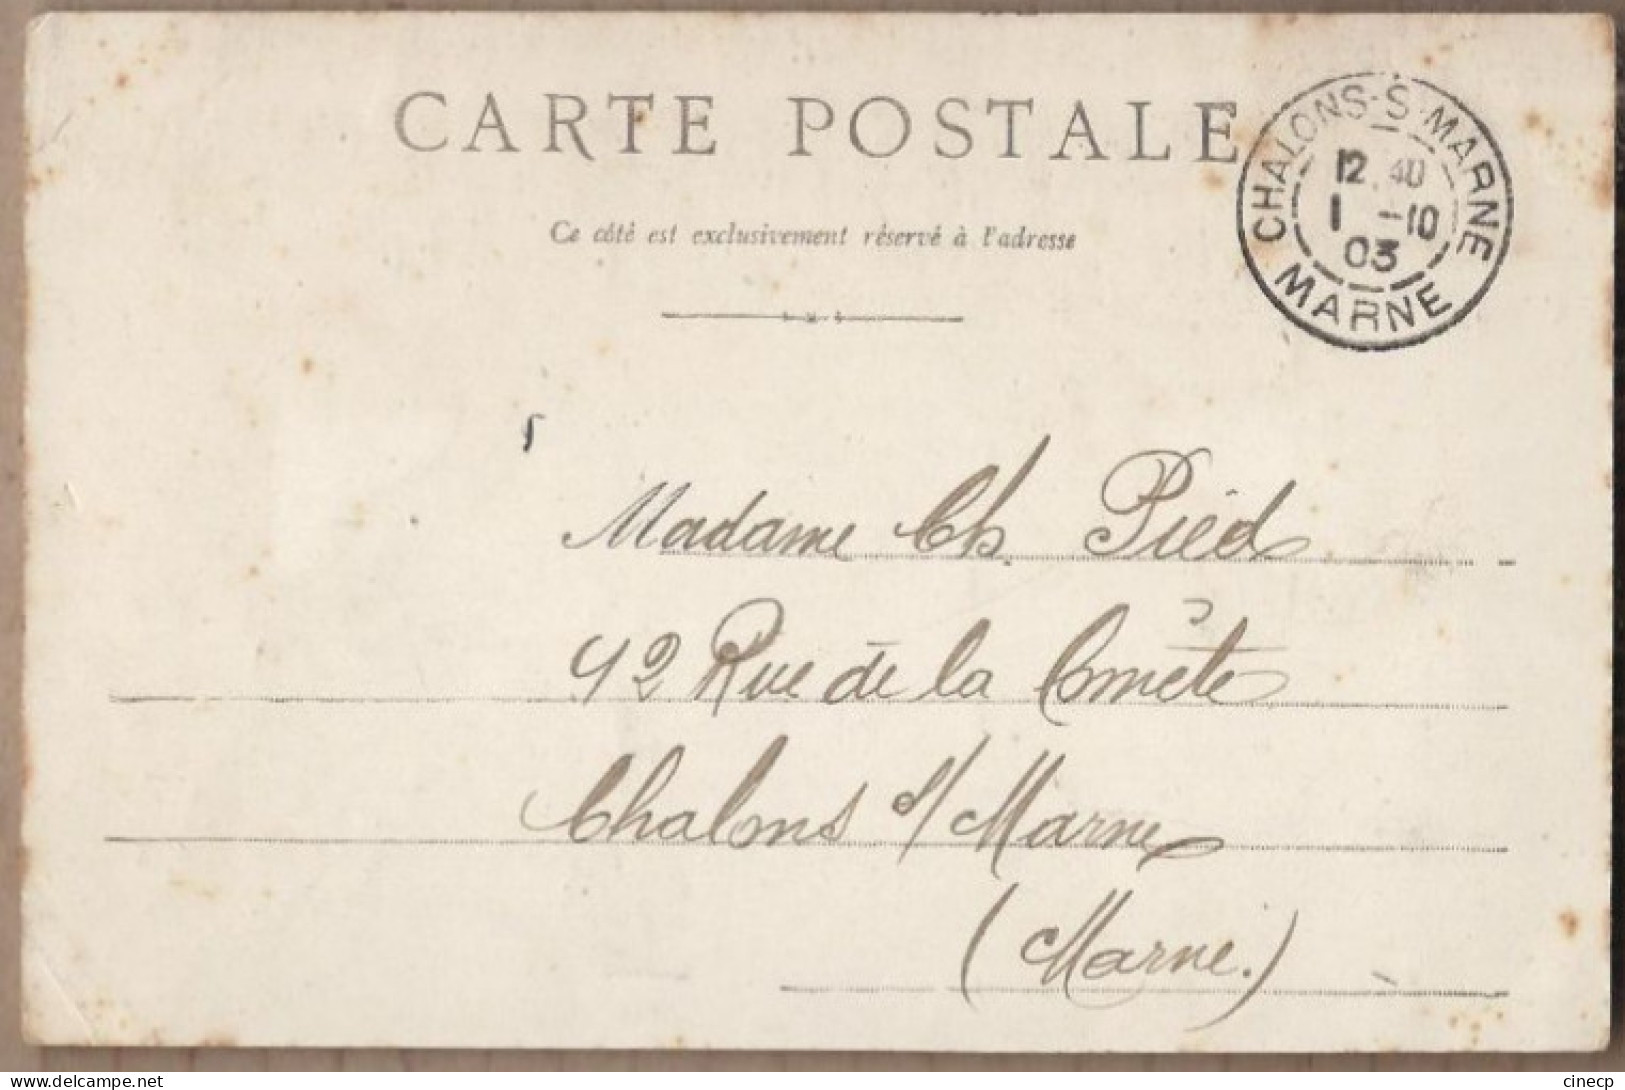 CARTE POSTALE
Ce côté est exclusivement réservé à l'adresse
CHALONS-S-MARNE
12 40
1 -10
03
MARNE
Madame Ch. Pied
42 Rue de la Comète
Chalons s/ Marne
(Marne.)
www.delcampe.net
cinecp